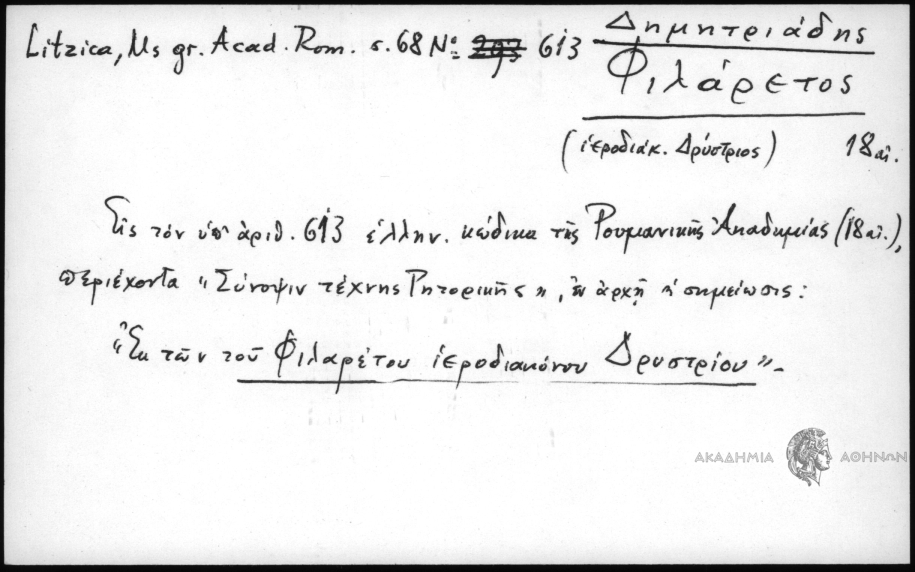 Litzica, Ms gr. Acad. Rom. σ. 68 Νο: 293 613 Δημητριάδης
Φιλάρετος
(ἱεροδιάκ. Δρύστριος) 18 αἰ.
Εἰς τὸν ὑπ' ἀριθ. 613 ἑλλην. κώδικα τῆς Ρουμανικῆς Ἀκαδημίας (18 αἰ.),
περιέχοντα "Σύνοψιν τέχνης Ρητορικῆς", ἐν ἀρχῇ ἡ σημείωσις:
"Ἐκ τῶν τοῦ Φιλαρέτου ἱεροδιακόνου Δρυστρίου".-
ΑΚΑΔΗΜΙΑ ΑΘΗΝΩΝ